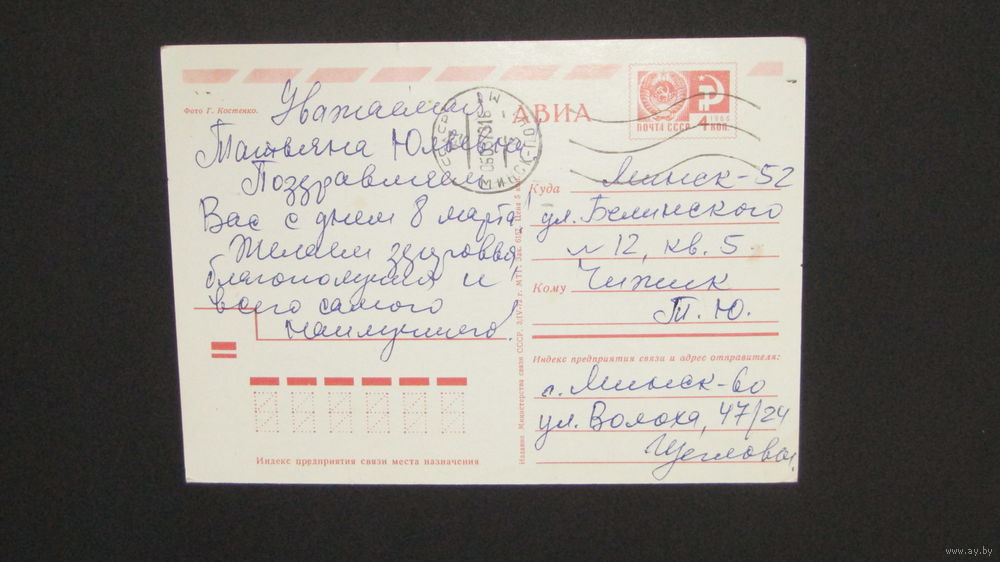 Фото Г. Костенко.
АВИА
ПОЧТА СССР 4 КОП.
1966
Уважаемая
Татьяна Юльевна
Поздравляем
Вас с днем 8 марта!
Желаем здоровья,
благополучия и
всего самого
наилучшего!
Куда Минск-52
ул. Белинского
12, кв. 5
Кому Чижик
Т. Ю.
Индекс предприятия связи и адрес отправителя:
г. Минск-60
ул. Волоха, 47/24
Щеглова
Индекс предприятия связи места назначения
Издание Министерства связи СССР.
www.ay.by